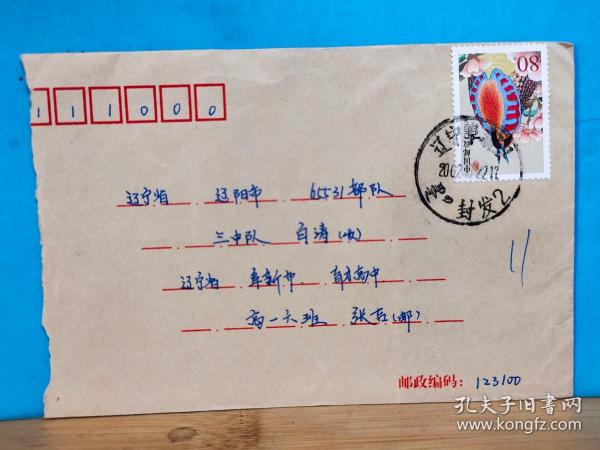 111000
80
中国邮政
辽宁
封发2
辽宁省 辽阳市 65531部队
三中队 白涛(收)
辽宁省 阜新市 育才高中
高一六班 张吉(邮)
邮政编码: 123100
11
孔夫子旧书网
www.kongfz.com